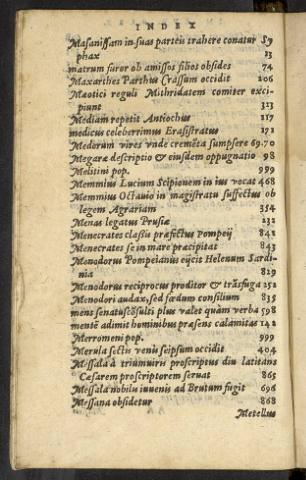 INDEX
Masanissam in suas partes trahere conatur Sy
phax 13
matrum furor ob amissos filios obsides 74
Maxarthes Parthus Crassum occidit 206
Mæotici reguli Mithridatem comiter exci-
piunt 323
Mediam repetit Antiochus 117
medicus celeberrimus Erasistratus 171
Medorum vires vnde cremēta sumpsere 69.70
Megaræ descriptio & eiusdem oppugnatio 98
Melitini pop. 999
Memmius Lucium Scipionem in ius vocat 468
Memmius Octauio in magistratu suffectus ob
legem Agrariam 354
Menas legatus Prusiæ 232
Menecrates classis præfectus Pompeij 842
Menecrates se in mare præcipitat 843
Menodorus Pompeianus eijcit Helenum Sardi-
nia 829
Menodorus reciprocus proditor & trāsfuga 251
Menodori audax, sed fœdum consilium 835
mens senatuscōsulti plus valet quàm verba 598
mentē adimit hominibus præsens calamitas 142
Merromeni pop. 999
Merula sectis venis seipsum occidit 404
Messala à triumuiris proscriptus diu latitans
Cæsarem proscriptorem seruat 865
Messala nobilis iuuenis ad Brutum fugit 696
Messana obsidetur 868
Metellus